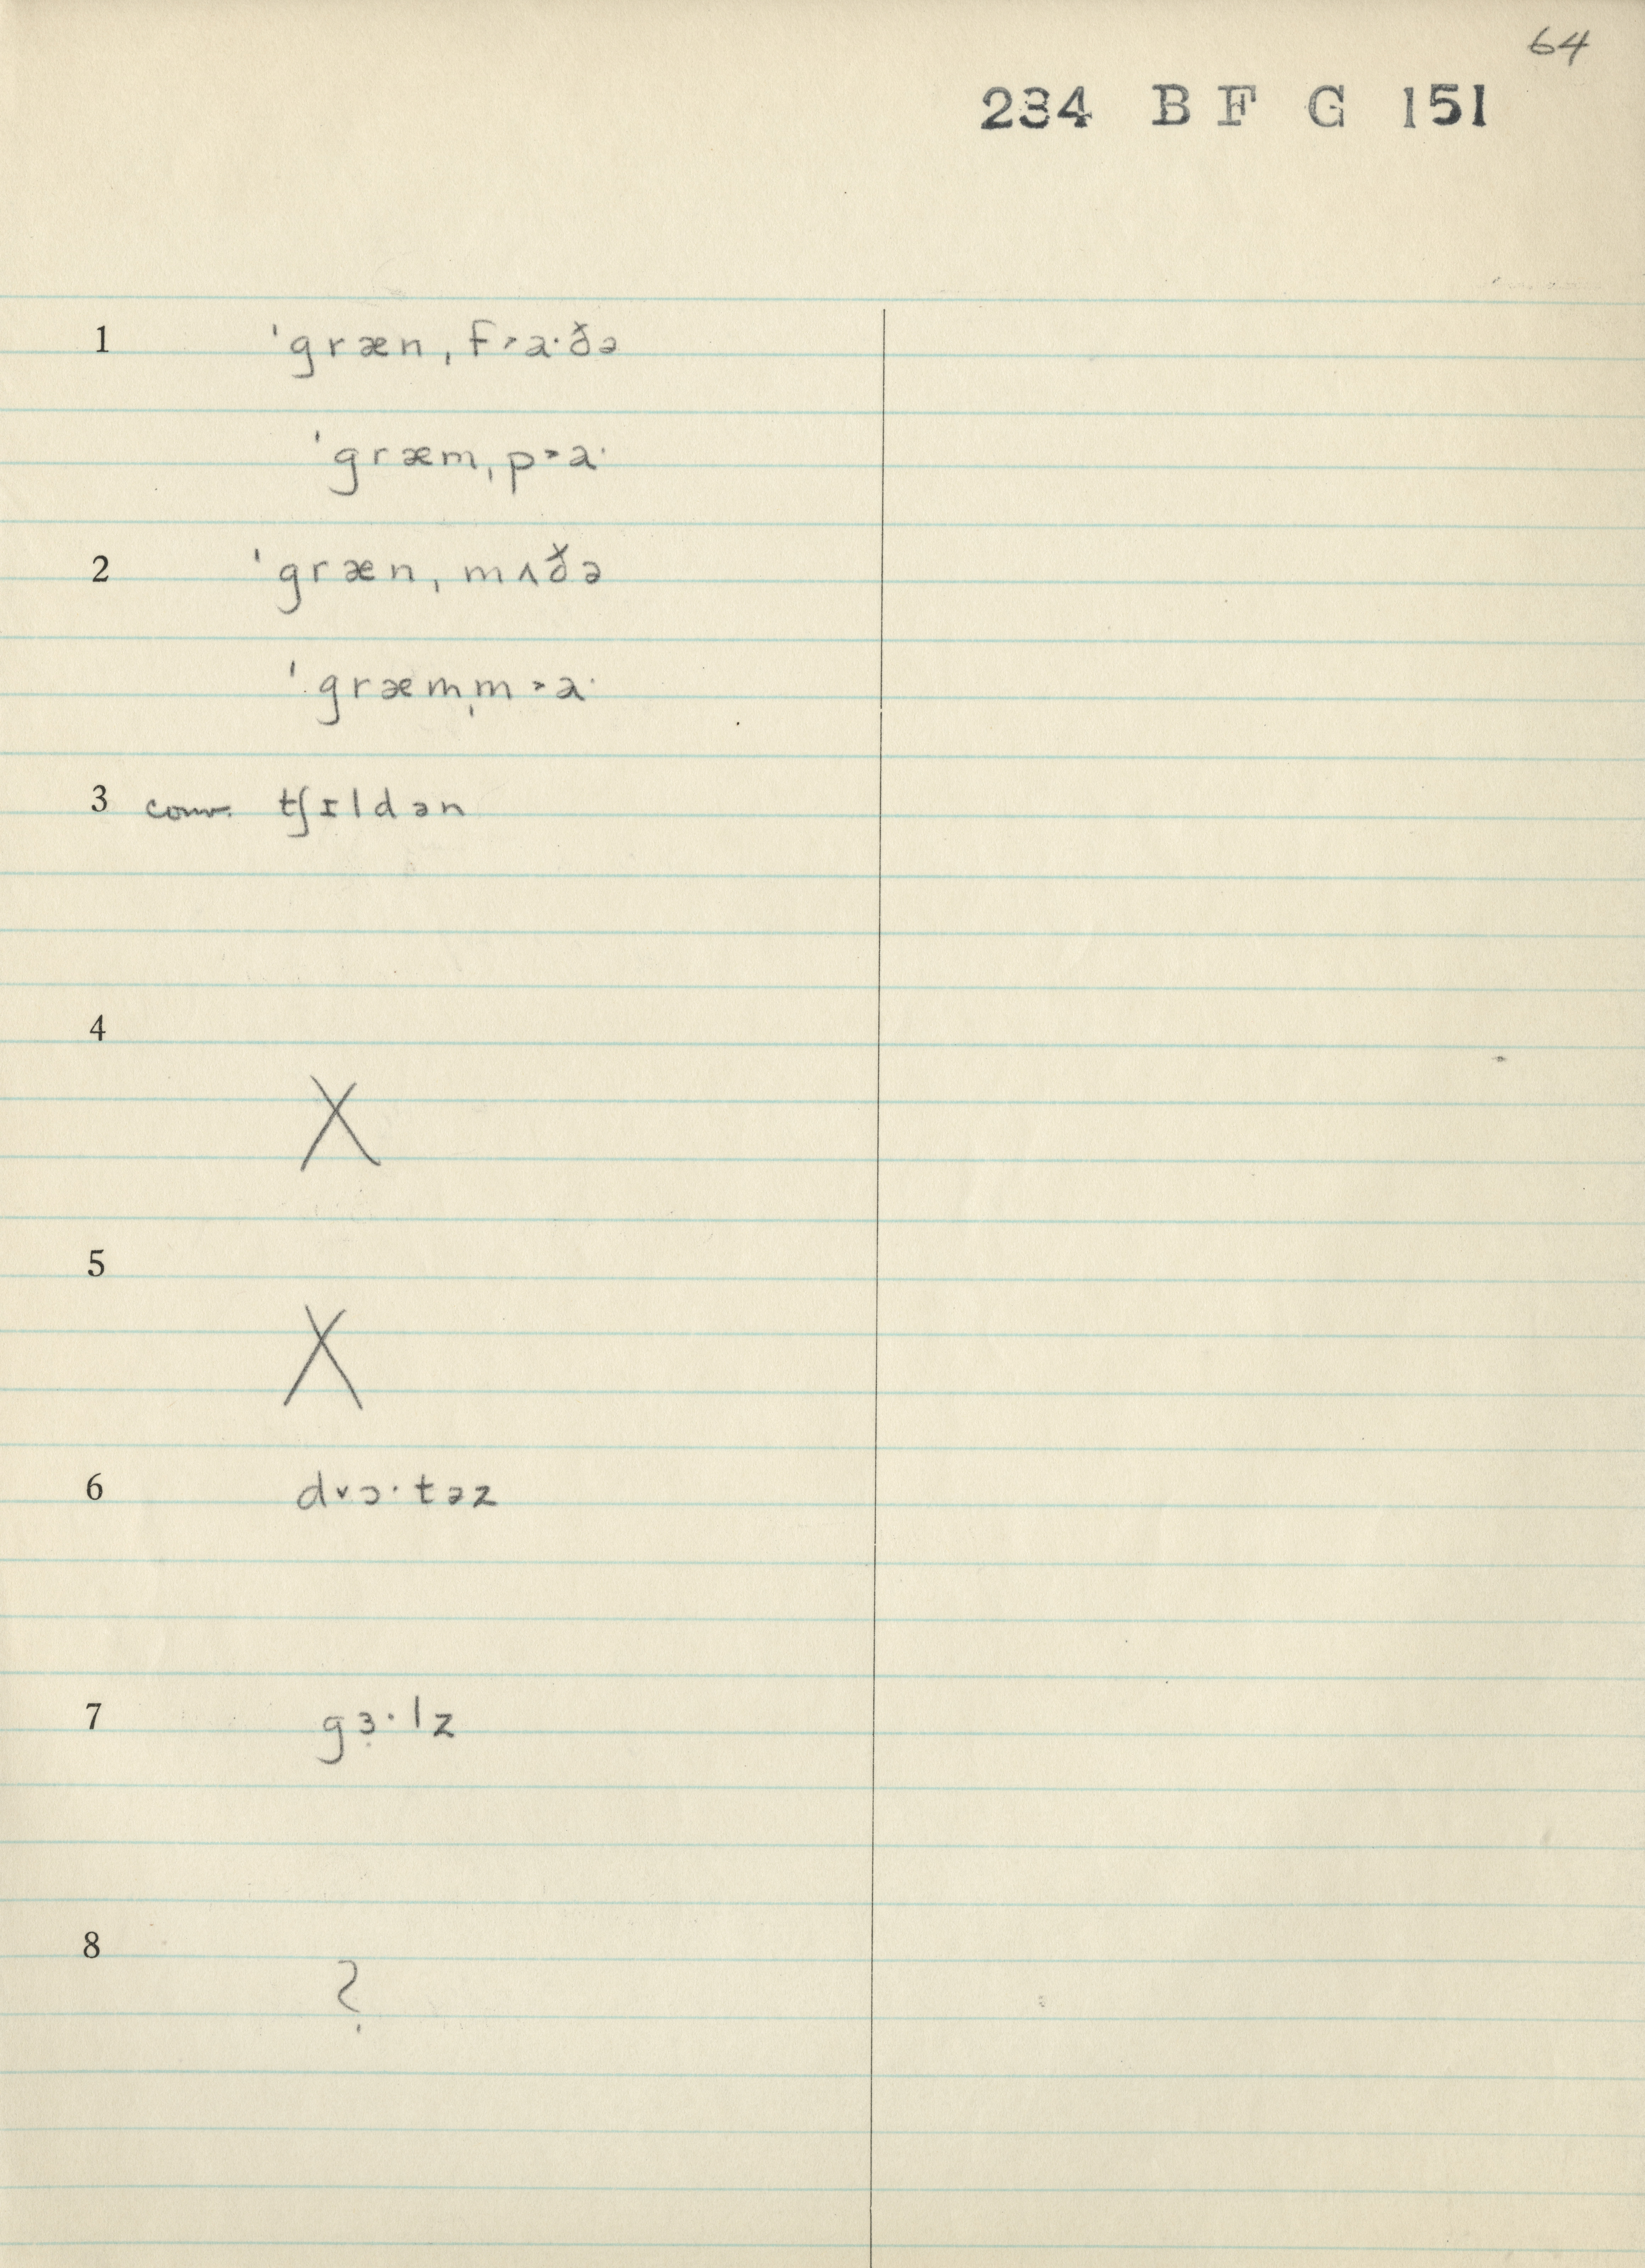 64
234 B F G 151
1 ˈgræn ˌf˃a·ðə
ˈgræm ˌp˃a·
2 ˈgræn ˌmʌðə
ˈgræm ˌm˃a·
3 conv. tʃɪldən
4
X
5
X
6 d˅ɔ·təz
7 gɜ̣·lz
8
?